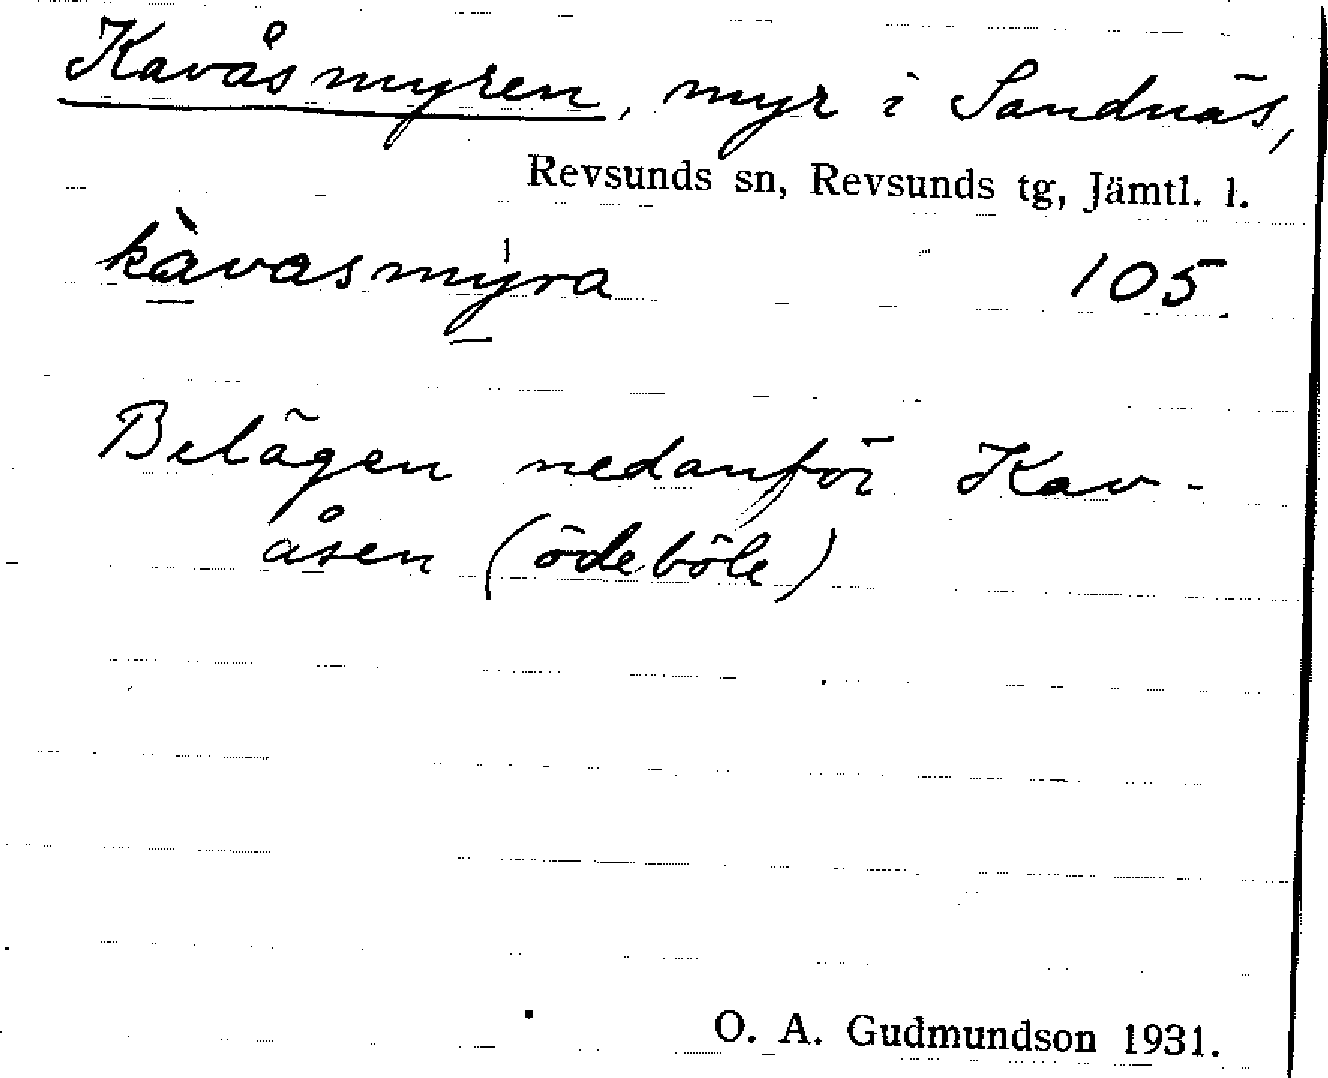 Kavåsmyren, myr i Sandnäs,
Revsunds sn, Revsunds tg, Jämtl. l.
kàvasmy̍ra 105
Belägen nedanför Kav-
åsen (ödeböle)
O. A. Gudmundson 1931.